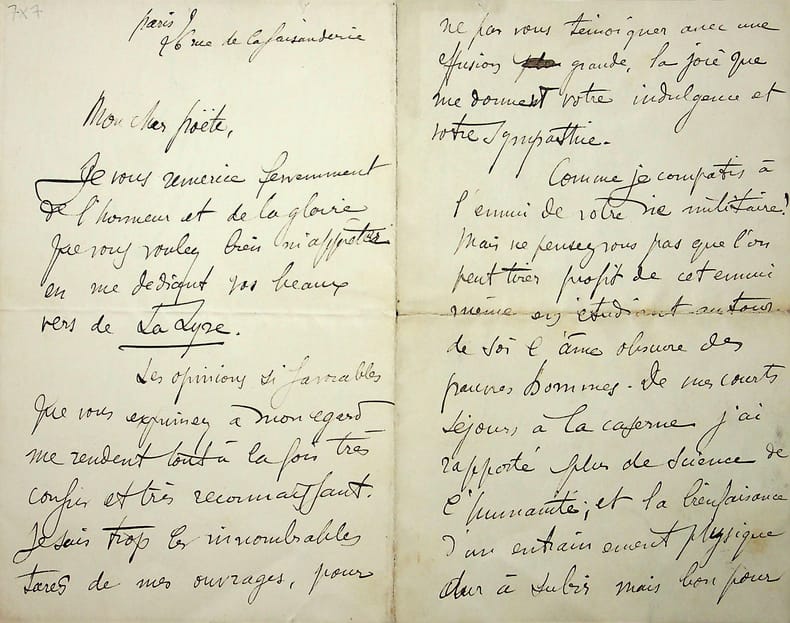 7x7
Paris
26 rue de la faisanderie
Mon cher poëte,
Je vous remercie fervemment
de l'honneur et de la gloire
que vous voulez bien m'apprêter
en me dédiant vos beaux
vers de La Lyre.
Les opinions si favorables
que vous exprimez à mon egard
me rendent tout à la fois très
confus et très reconnaissant.
Je sais trop les innombrables
tares de mes ouvrages, pour
ne pas vous témoigner avec une
effusion grande, la joie que
me donnent votre indulgence et
votre sympathie.
Comme je compatis à
l'ennui de votre vie militaire!
Mais ne pensez vous pas que l'on
peut tirer profit de cet ennui
même en étudiant autour
de soi l'âme obscure des
pauvres hommes. De mes courts
séjours à la caserne j'ai
rapporté plus de science de
l'humanité, et la bienfaisance
d'un entrainement physique
dur à subir mais bon pour